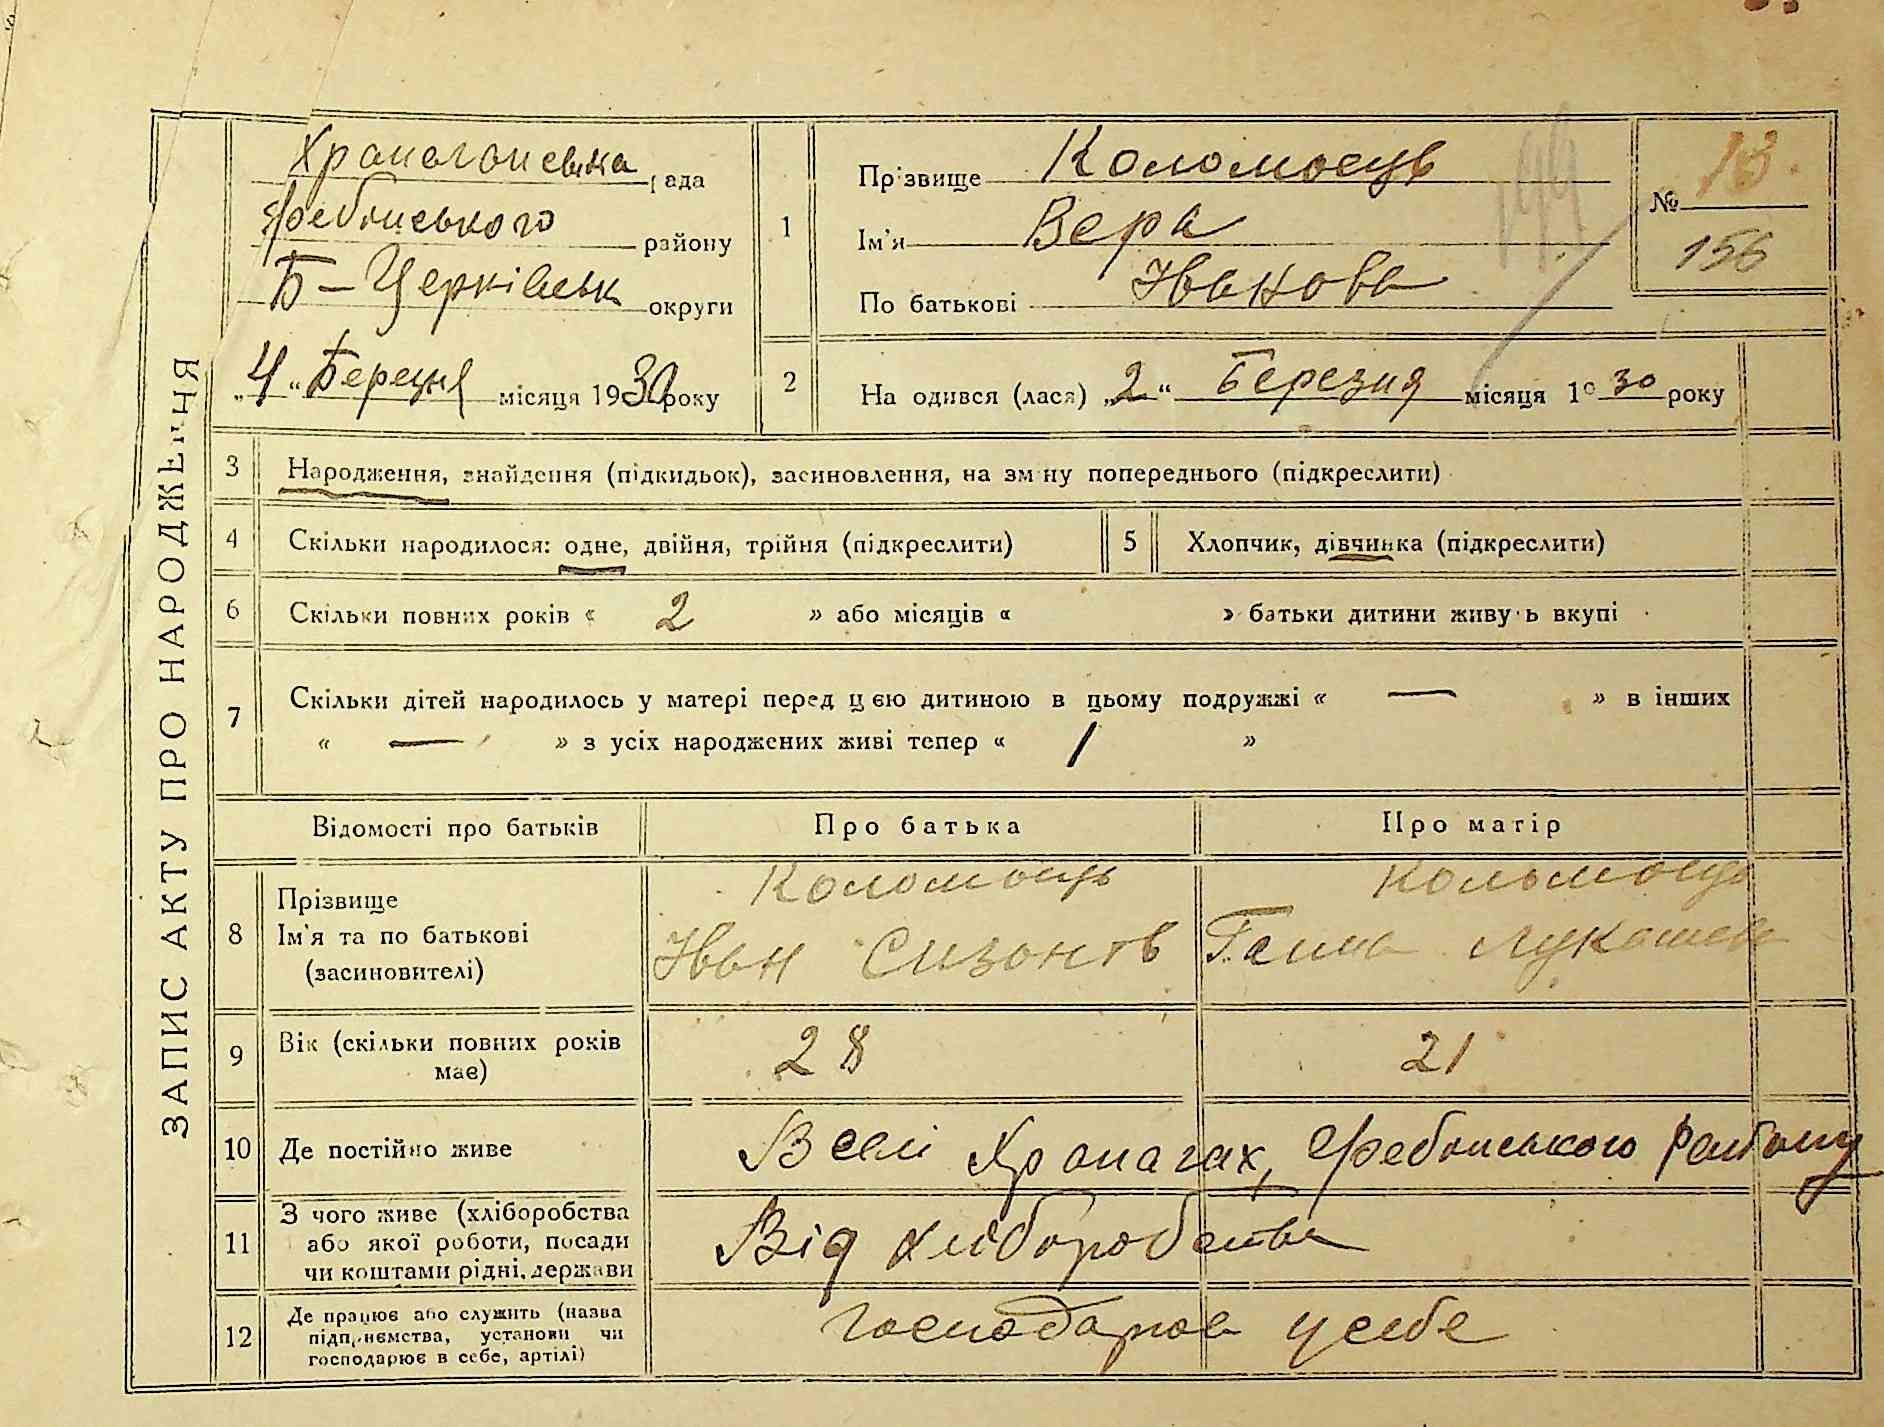 ЗАПИС АКТУ ПРО НАРОДЖЕННЯ
Храпачанська рада
Гребінського району
Б-Церківськ округи
„4“ Березня місяця 1930 року
1
Прізвище Коломоєць
Ім'я Вера
По батькові Іванова
№ 13.
156
2
Народився (лася) „2“ Березня місяця 1930 року
3 Народження, знайдення (підкидьок), засиновлення, на зміну попереднього (підкреслити)
4 Скільки народилося: одне, двійня, трійня (підкреслити)
5 Хлопчик, дівчинка (підкреслити)
6 Скільки повних років « 2 » або місяців « » батьки дитини живуть вкупі
7 Скільки дітей народилось у матері перед цією дитиною в цьому подружжі « — » в інших
« — » з усіх народжених живі тепер « 1 »
Відомості про батьків Про батька Про матір
8 Прізвище
Ім'я та по батькові
(засиновителі)
Коломоєць
Іван Сизонтів
Кольмоєць
Ганна Лукашева
9 Вік (скільки повних років
має)
28 21
10 Де постійно живе В селі Храпачах, Гребінського району
11 З чого живе (хліборобства
або якої роботи, посади
чи коштами рідні, держави
Від хліборобства
12 Де працює або служить (назва
підприємства, установи чи
господарює в себе, артілі)
господарює у себе